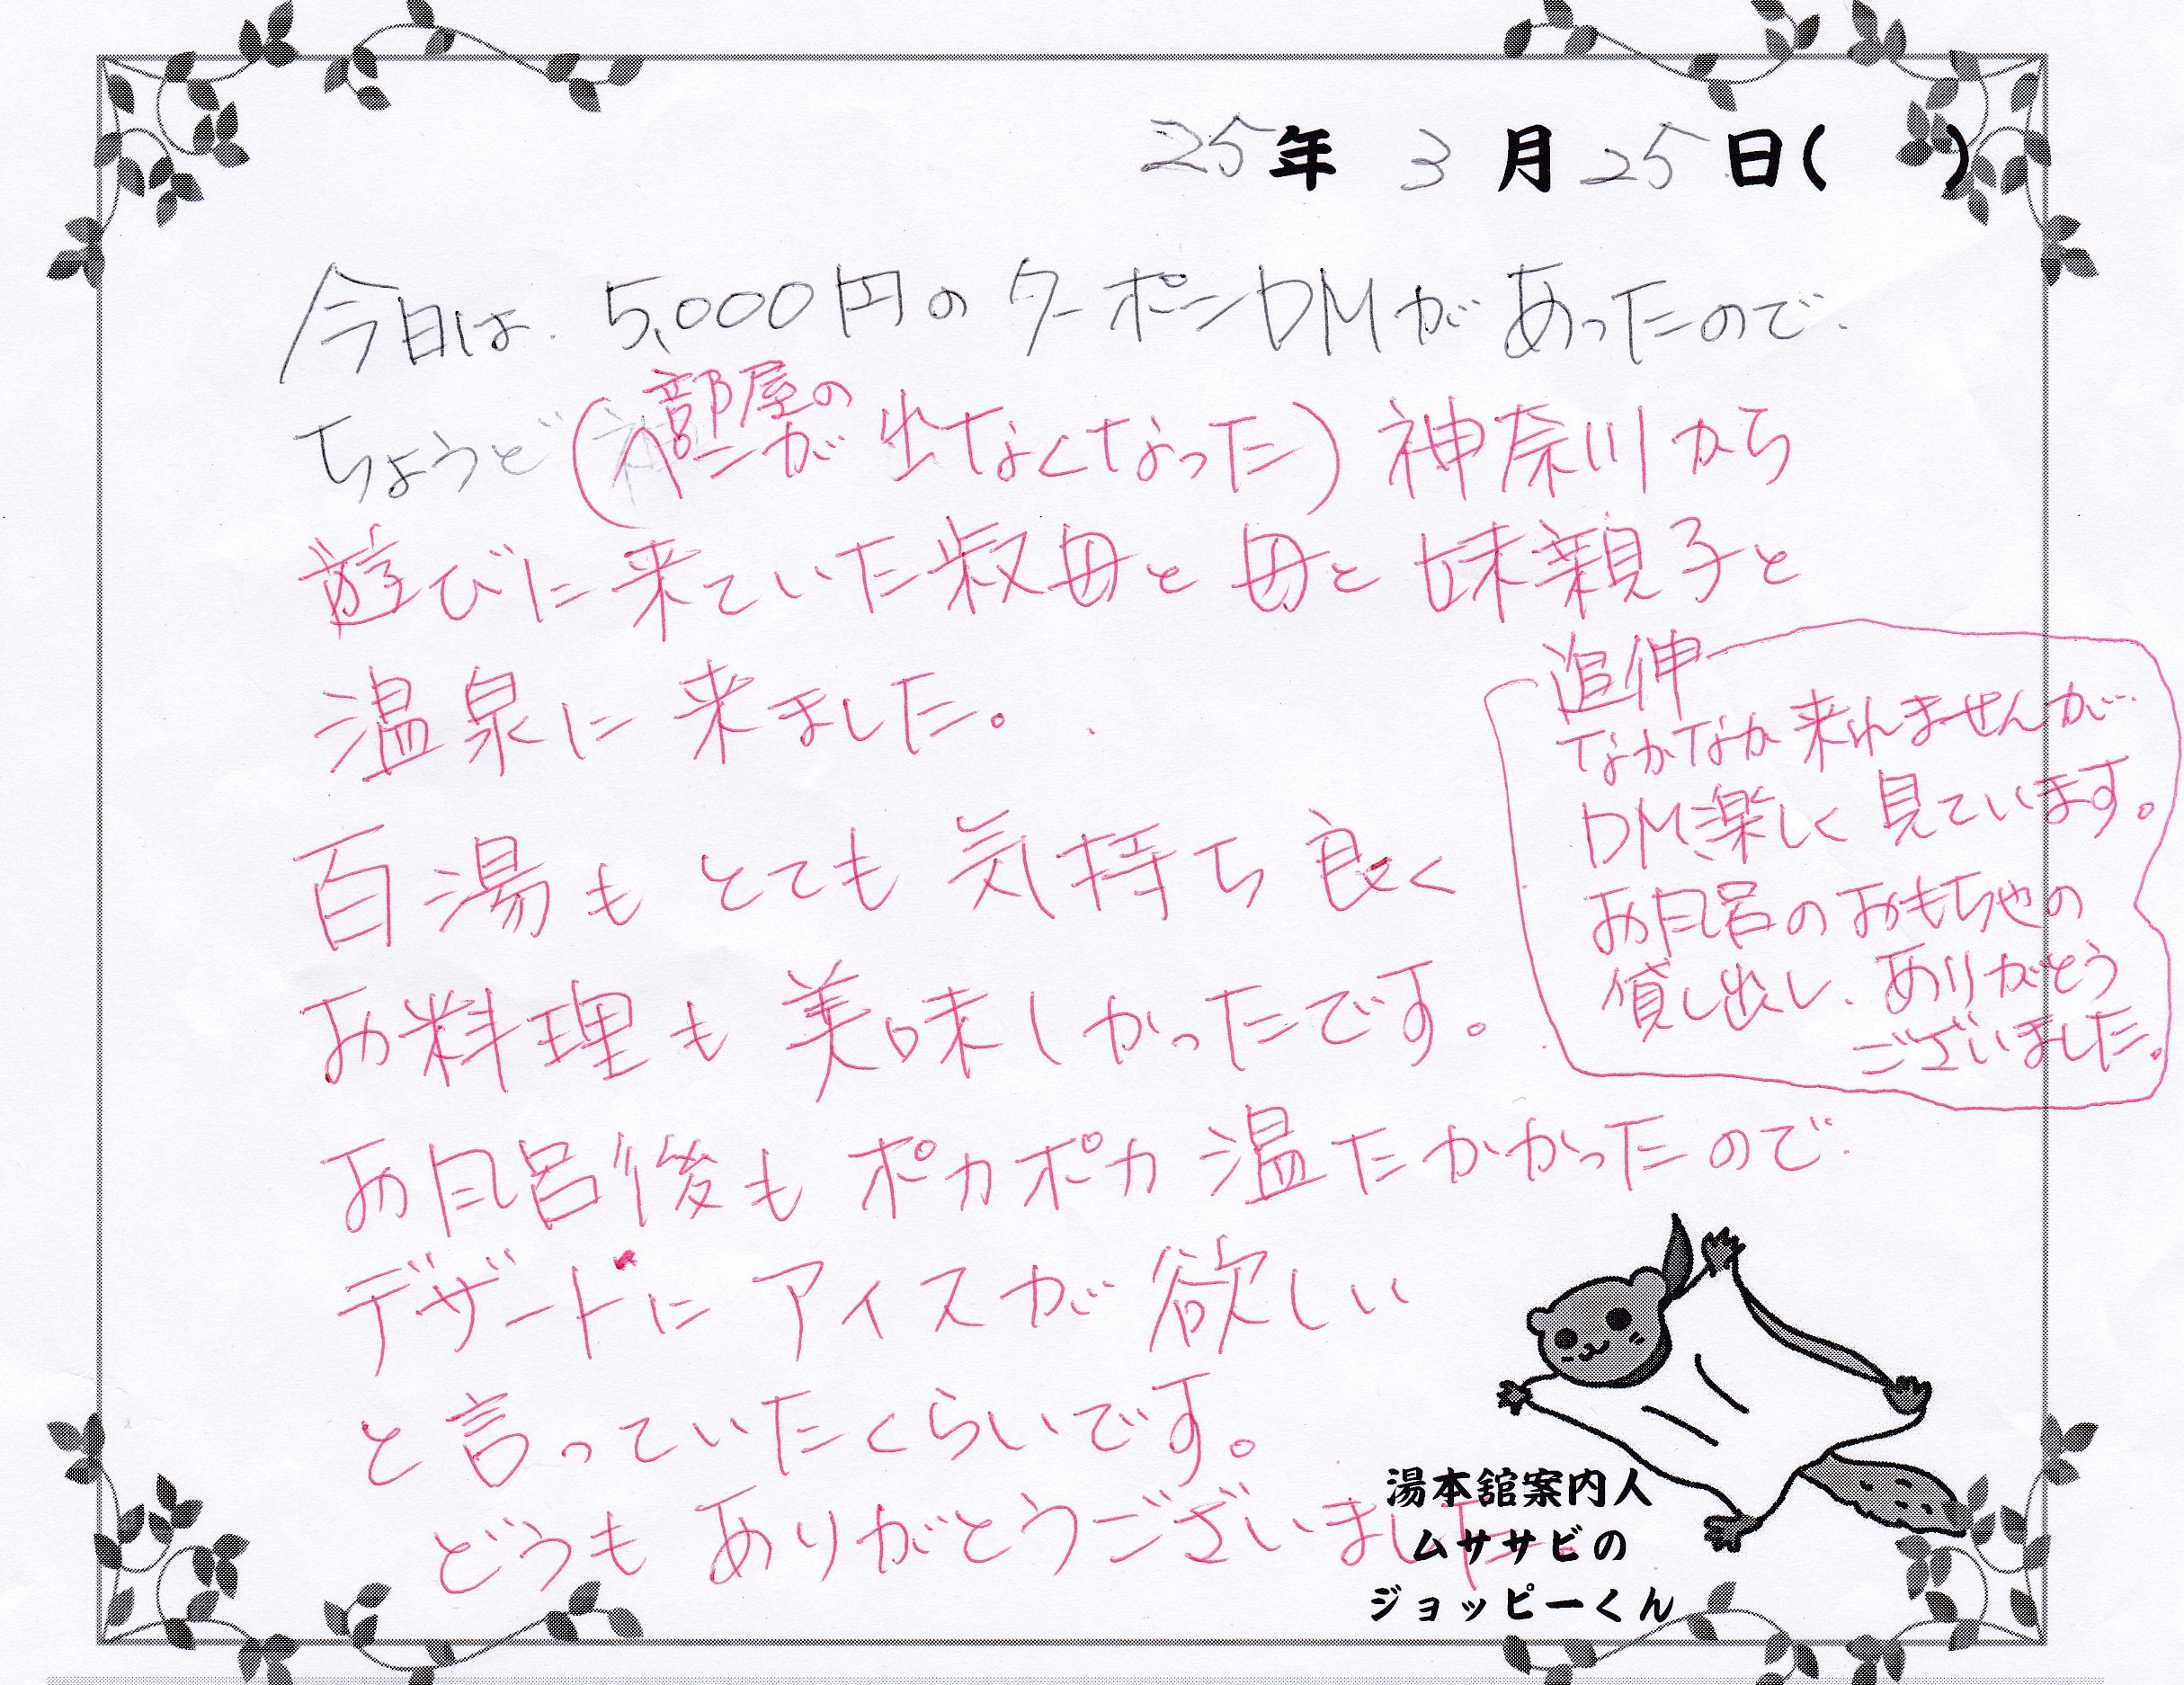 25年 3月25日( )
今日は、5,000円のクーポンDMがあったので、
ちょうど(部屋のペンが出なくなった)神奈川から
遊びに来ていた叔母と母と妹親子と
温泉に来ました。
百湯もとても気持ち良く
お料理も美味しかったです。
お風呂後もポカポカ温たかかったので、
デザートにアイスが欲しい
と言っていたくらいです。
どうもありがとうございました。
追伸
なかなか来れませんが…
DM、楽しく見ています。
お風呂のおもちゃの
貸し出し、ありがとう
ございました。
湯本舘案内人
ムササビの
ジョッピーくん